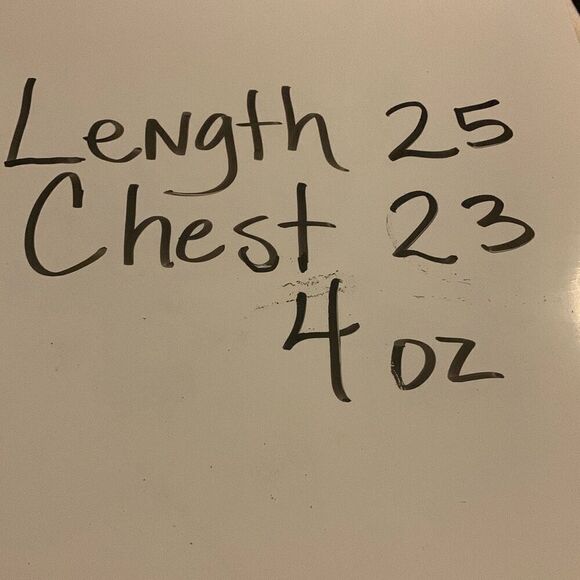 Length 25
Chest 23
4 oz